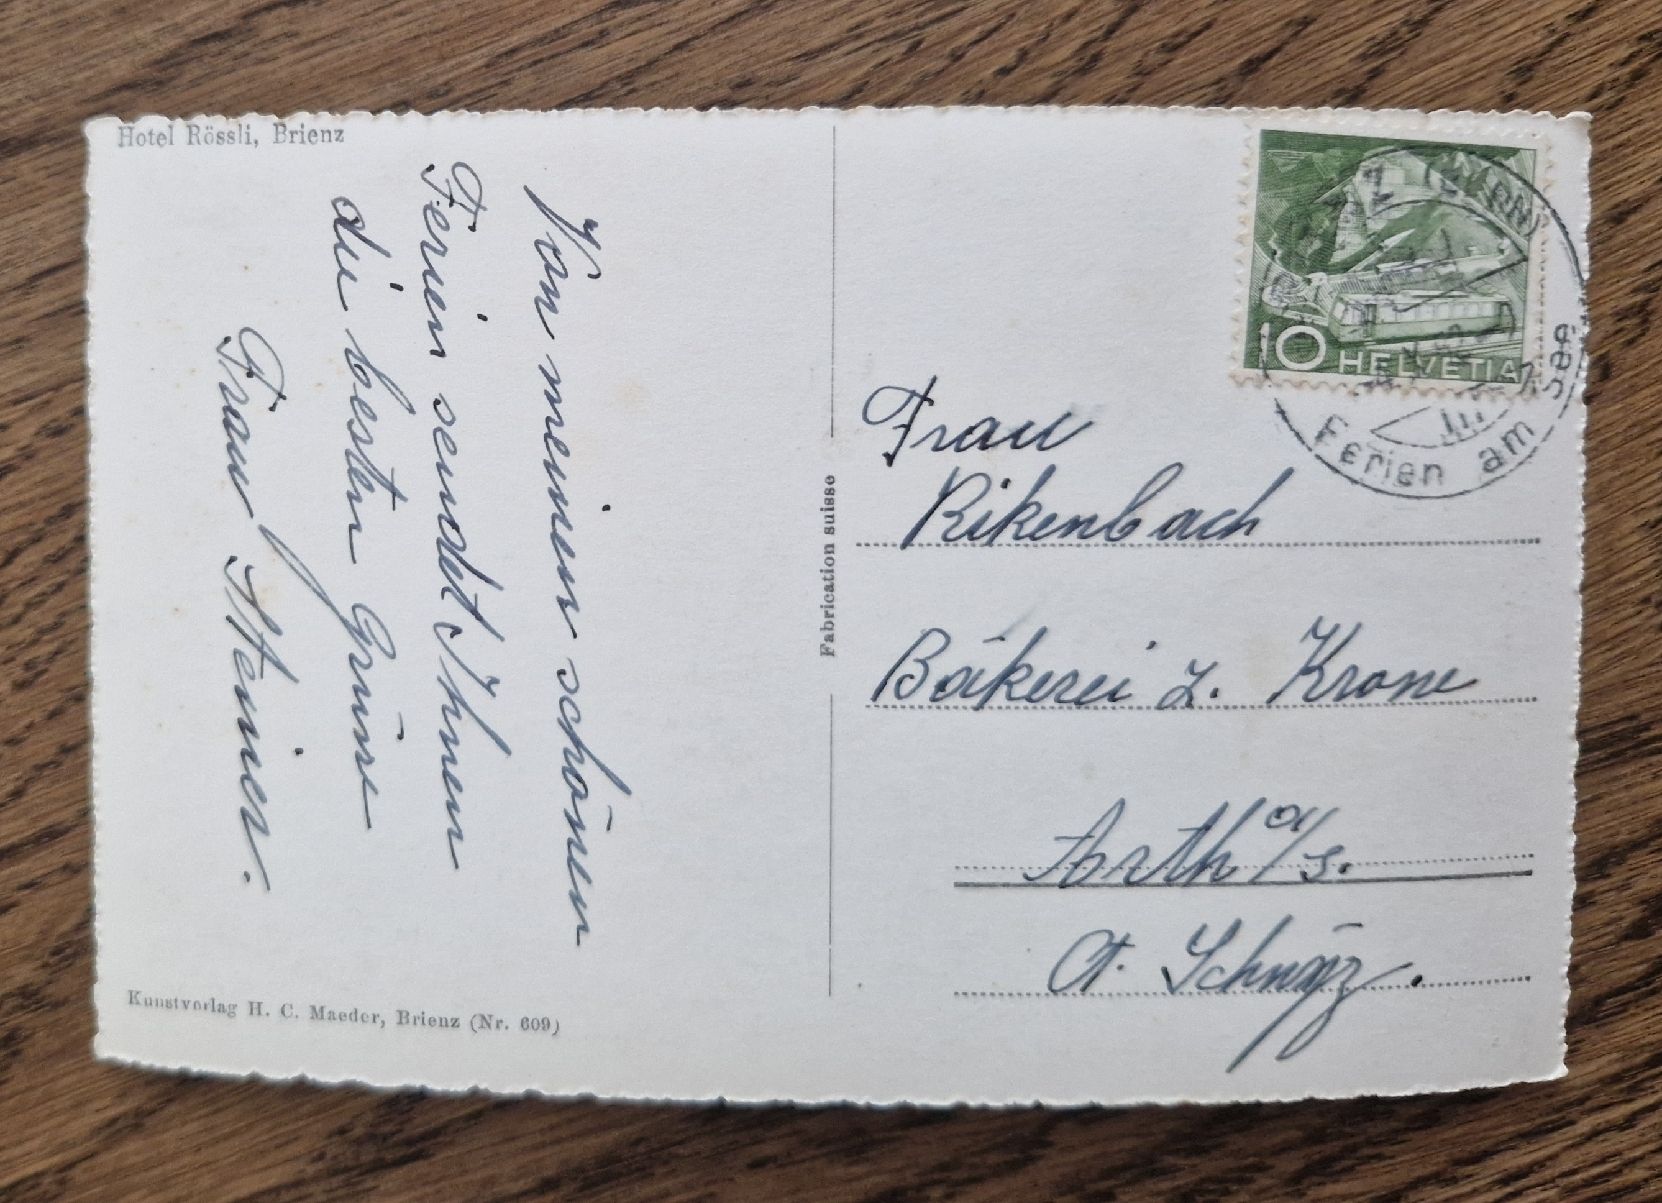 Hotel Rössli, Brienz
Von meinen schönen
Ferien sendet Ihnen
die besten Grüsse
Frau Steiner.
Kunstverlag H. C. Maeder, Brienz (Nr. 609)
Fabrication suisse
10 HELVETIA
(BERN)
Ferien am See
Frau
Rikenbach
Bäkerei z. Krone
Arth a/s.
Ct. Schwyz.